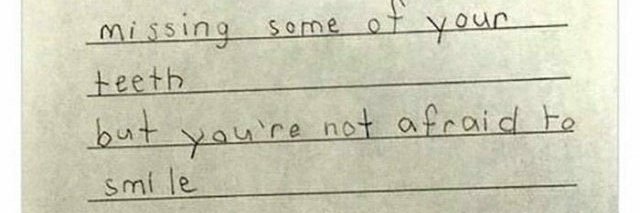 missing some of your
teeth
but you're not afraid to
smile